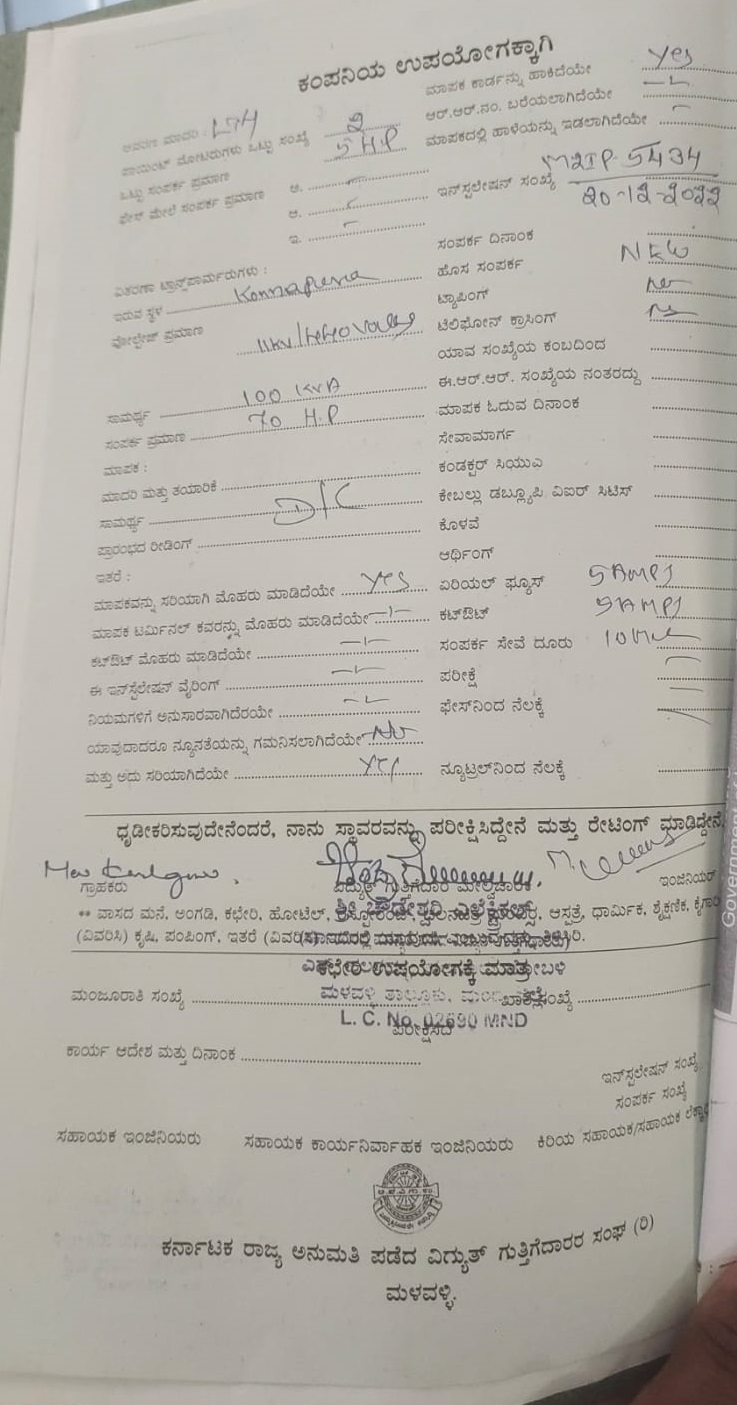 ಕಂಪನಿಯ ಉಪಯೋಗಕ್ಕಾಗಿ
ಮಾಪಕ ಕಾರ್ಡನ್ನು ಹಾಕಿದೆಯೇ Yes
ಆರ್.ಆರ್.ನಂ. ಬರೆಯಲಾಗಿದೆಯೇ
ಮಾಪಕದಲ್ಲಿ ಹಾಳೆಯನ್ನು ಇಡಲಾಗಿದೆಯೇ
ಪಾಯಿಂಟ್ ಮೋಟರುಗಳು ಒಟ್ಟು ಸಂಖ್ಯೆ 2
ಒಟ್ಟು ಸಂಪರ್ಕ ಪ್ರಮಾಣ 5 H.P
ಫೇಸ್ ಮೇಲೆ ಸಂಪರ್ಕ ಪ್ರಮಾಣ ಅ.
ಆ.
ಇ.
ಇನ್‌ಸ್ಟಲೇಷನ್ ಸಂಖ್ಯೆ M2IP 5434
ಸಂಪರ್ಕ ದಿನಾಂಕ 20-12-2022
ಹೊಸ ಸಂಪರ್ಕ NEW
ಟ್ಯಾಪಿಂಗ್
ಟೆಲಿಫೋನ್ ಕ್ರಾಸಿಂಗ್
ಯಾವ ಸಂಖ್ಯೆಯ ಕಂಬದಿಂದ
ಈ.ಆರ್.ಆರ್. ಸಂಖ್ಯೆಯ ನಂತರದ್ದು
ಮಾಪಕ ಓದುವ ದಿನಾಂಕ
ಸೇವಾಮಾರ್ಗ
ಕಂಡಕ್ಟರ್ ಸಿಯುಎ
ಕೇಬಲ್ಲು ಡಬ್ಲ್ಯೂಪಿ ವಿಐರ್ ಸಿಟಿಸ್
ಕೊಳವೆ
ಆರ್ಥಿಂಗ್
ಏರಿಯಲ್ ಫ್ಯೂಸ್ 5 AMPS
ಕಟ್‌ಔಟ್ 5 AMPS
ಸಂಪರ್ಕ ಸೇವೆ ದೂರು
ಪರೀಕ್ಷೆ
ಫೇಸ್‌ನಿಂದ ನೆಲಕ್ಕೆ
ನ್ಯೂಟ್ರಲ್‌ನಿಂದ ನೆಲಕ್ಕೆ
ವಿತರಣಾ ಟ್ರಾನ್ಸ್‌ಫಾರ್ಮರುಗಳು :
ಇರುವ ಸ್ಥಳ
ವೋಲ್ಟೇಜ್ ಪ್ರಮಾಣ
ಸಾಮರ್ಥ್ಯ 100 KVA
ಸಂಪರ್ಕ ಪ್ರಮಾಣ 70 H.P
ಮಾಪಕ :
ಮಾದರಿ ಮತ್ತು ತಯಾರಿಕೆ
ಸಾಮರ್ಥ್ಯ D/C
ಪ್ರಾರಂಭದ ರೀಡಿಂಗ್
ಇತರೆ :
ಮಾಪಕವನ್ನು ಸರಿಯಾಗಿ ಮೊಹರು ಮಾಡಿದೆಯೇ Yes
ಮಾಪಕ ಟರ್ಮಿನಲ್ ಕವರನ್ನು ಮೊಹರು ಮಾಡಿದೆಯೇ
ಕಟ್‌ಔಟ್ ಮೊಹರು ಮಾಡಿದೆಯೇ
ಈ ಇನ್‌ಸ್ಟಲೇಷನ್ ವೈರಿಂಗ್
ನಿಯಮಗಳಿಗೆ ಅನುಸಾರವಾಗಿದೆರಯೇ
ಯಾವುದಾದರೂ ನ್ಯೂನತೆಯನ್ನು ಗಮನಿಸಲಾಗಿದೆಯೇ No
ಮತ್ತು ಅದು ಸರಿಯಾಗಿದೆಯೇ Yes
ಧೃಡೀಕರಿಸುವುದೇನೆಂದರೆ, ನಾನು ಸ್ಥಾವರವನ್ನು ಪರೀಕ್ಷಿಸಿದ್ದೇನೆ ಮತ್ತು ರೇಟಿಂಗ್ ಮಾಡಿದ್ದೇನೆ
ಗ್ರಾಹಕರು ವಿದ್ಯುತ್ ಗುತ್ತಿಗೆದಾರ ಮೇಲ್ವಿಚಾರಕ ಇಂಜಿನಿಯರ್
** ವಾಸದ ಮನೆ, ಅಂಗಡಿ, ಕಛೇರಿ, ಹೋಟೆಲ್, ಆಸ್ಪತ್ರೆ, ಧಾರ್ಮಿಕ, ಶೈಕ್ಷಣಿಕ,
(ವಿವರಿಸಿ) ಕೃಷಿ, ಪಂಪಿಂಗ್, ಇತರೆ
ಕಛೇರಿ ಉಪಯೋಗಕ್ಕೆ ಮಾತ್ರ
ಮಂಜೂರಾತಿ ಸಂಖ್ಯೆ
ಮಳವಳ್ಳಿ ತಾಲ್ಲೂಕು,
L. C. No. 02690 MND
ಕಾರ್ಯ ಆದೇಶ ಮತ್ತು ದಿನಾಂಕ
ಇನ್‌ಸ್ಟಲೇಷನ್ ಸಂಖ್ಯೆ
ಸಂಪರ್ಕ ಸಂಖ್ಯೆ
ಸಹಾಯಕ ಇಂಜಿನಿಯರು ಸಹಾಯಕ ಕಾರ್ಯನಿರ್ವಾಹಕ ಇಂಜಿನಿಯರು ಕಿರಿಯ ಸಹಾಯಕ/ಸಹಾಯಕ
ಕರ್ನಾಟಕ ರಾಜ್ಯ ಅನುಮತಿ ಪಡೆದ ವಿದ್ಯುತ್ ಗುತ್ತಿಗೆದಾರರ ಸಂಘ (ರಿ)
ಮಳವಳ್ಳಿ.